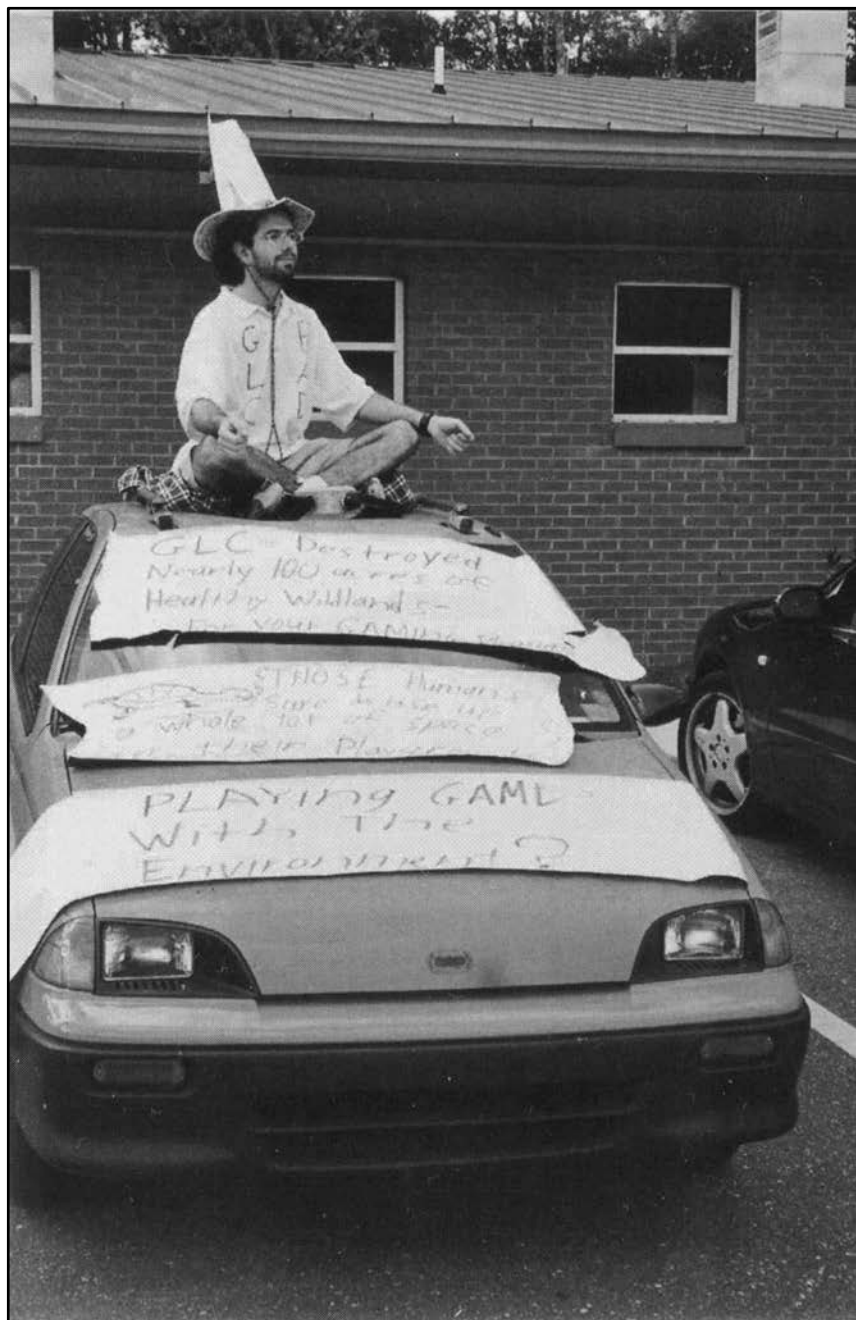 GLC
HAD
GLC - Destroyed
Nearly 100 acres of
Healthy Wildlands -
For your GAMING
THOSE Humans
Sure
a whole lot of space
their
PLAYing GAME
With The
Environment?